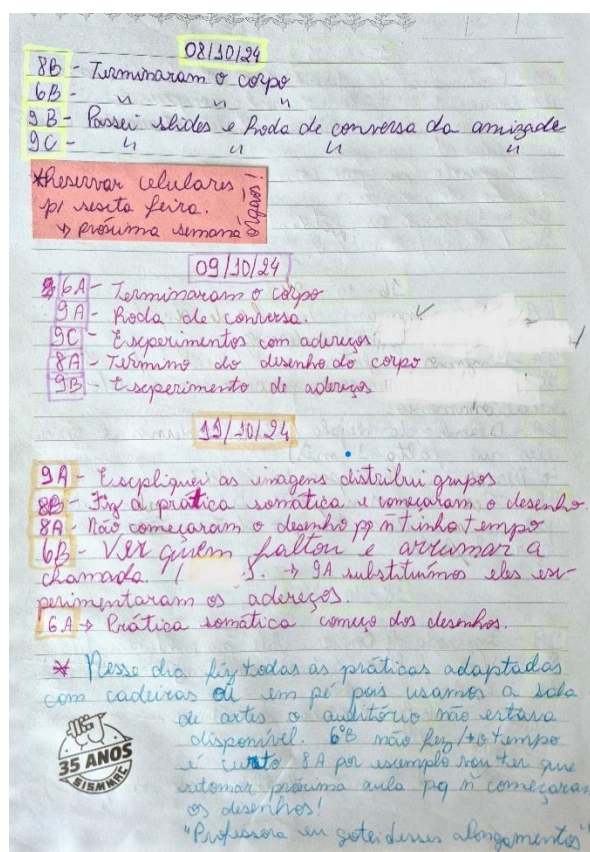 08/10/24
8B - Terminaram o corpo
6B - " " "
9B - Passei slides e Roda de conversa da amizade
9C - " " " "
*Reservar celulares
p/ sexta feira.
→ próxima semana órgãos!
09/10/24
6A - Terminaram o corpo
9A - Roda de conversa.
9C - Experimentos com adereços
8A - Término do desenho do corpo
9B - Experimento de adereços
11/10/24
9A - Expliquei as imagens distribui grupos
8B - Fiz a prática somática e começaram o desenho.
8A - Não começaram o desenho pq ñ tinha tempo
6B - Ver quem faltou e arrumar a
chamada. ( ). → 9A substituímos eles ex-
perimentaram os adereços
6A → Prática somática começo dos desenhos.
* Nesse dia fiz todas as práticas adaptadas
com cadeiras ou em pé pois usamos a sala
de artes o auditório não estava
disponível. 6ºB não fez / o tempo
é curto 8A por exemplo vou ter que
retomar próxima aula pq ñ começaram
os desenhos!
"Professora eu gostei desses alongamentos"
35 ANOS
SISMMAC